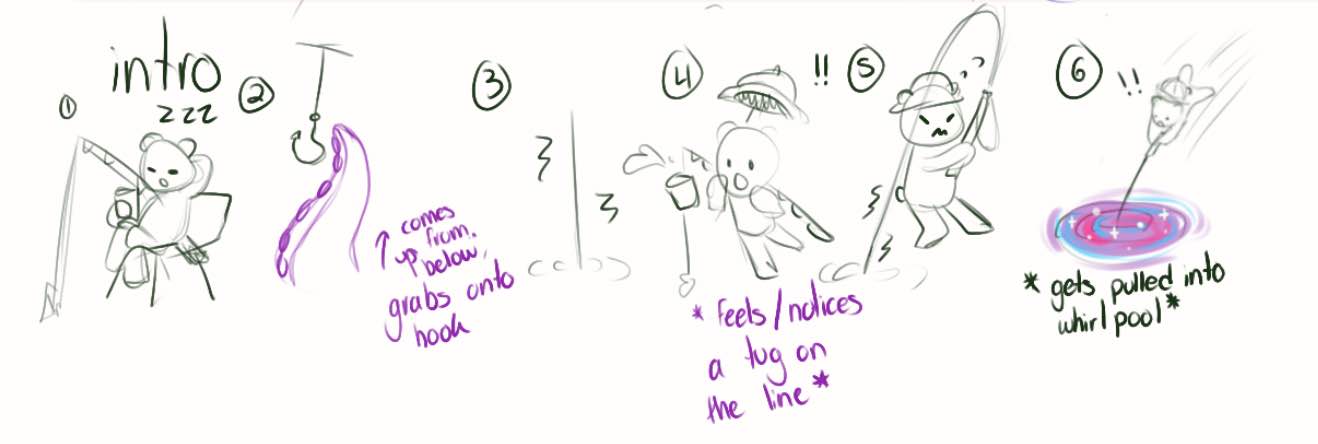 intro
①
zzz
②
↑ comes
up from
below,
grabs onto
hook
③
④
!!
* feels/notices
a tug on
the line *
⑤
⑥
!!
* gets pulled into
whirlpool *